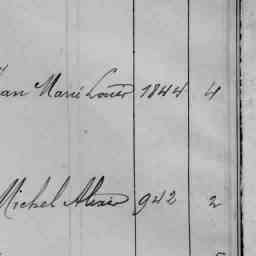 Jean Marie Louër 1844 4
Michel Alexis 942 2